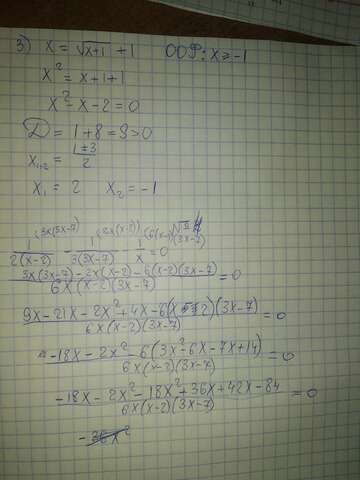 3) x = √(x+1) + 1 ООФ: x ≥ -1
x² = x+1+1
x² - x - 2 = 0
D = 1+8 = 9 > 0
x₁,₂ = (1±3)/2
x₁ = 2 x₂ = -1
1/(2(x-2)) - 1/(3(3x-7)) - 1/x = 0
(3x(3x-7) - 2x(x-2) - 6(x-2)(3x-7))/(6x(x-2)(3x-7)) = 0
(9x - 21x - 2x² + 4x - 6(x-2)(3x-7))/(6x(x-2)(3x-7)) = 0
(-18x - 2x² - 6(3x² - 6x - 7x + 14))/(6x(x-2)(3x-7)) = 0
(-18x - 2x² - 18x² + 36x + 42x - 84)/(6x(x-2)(3x-7)) = 0